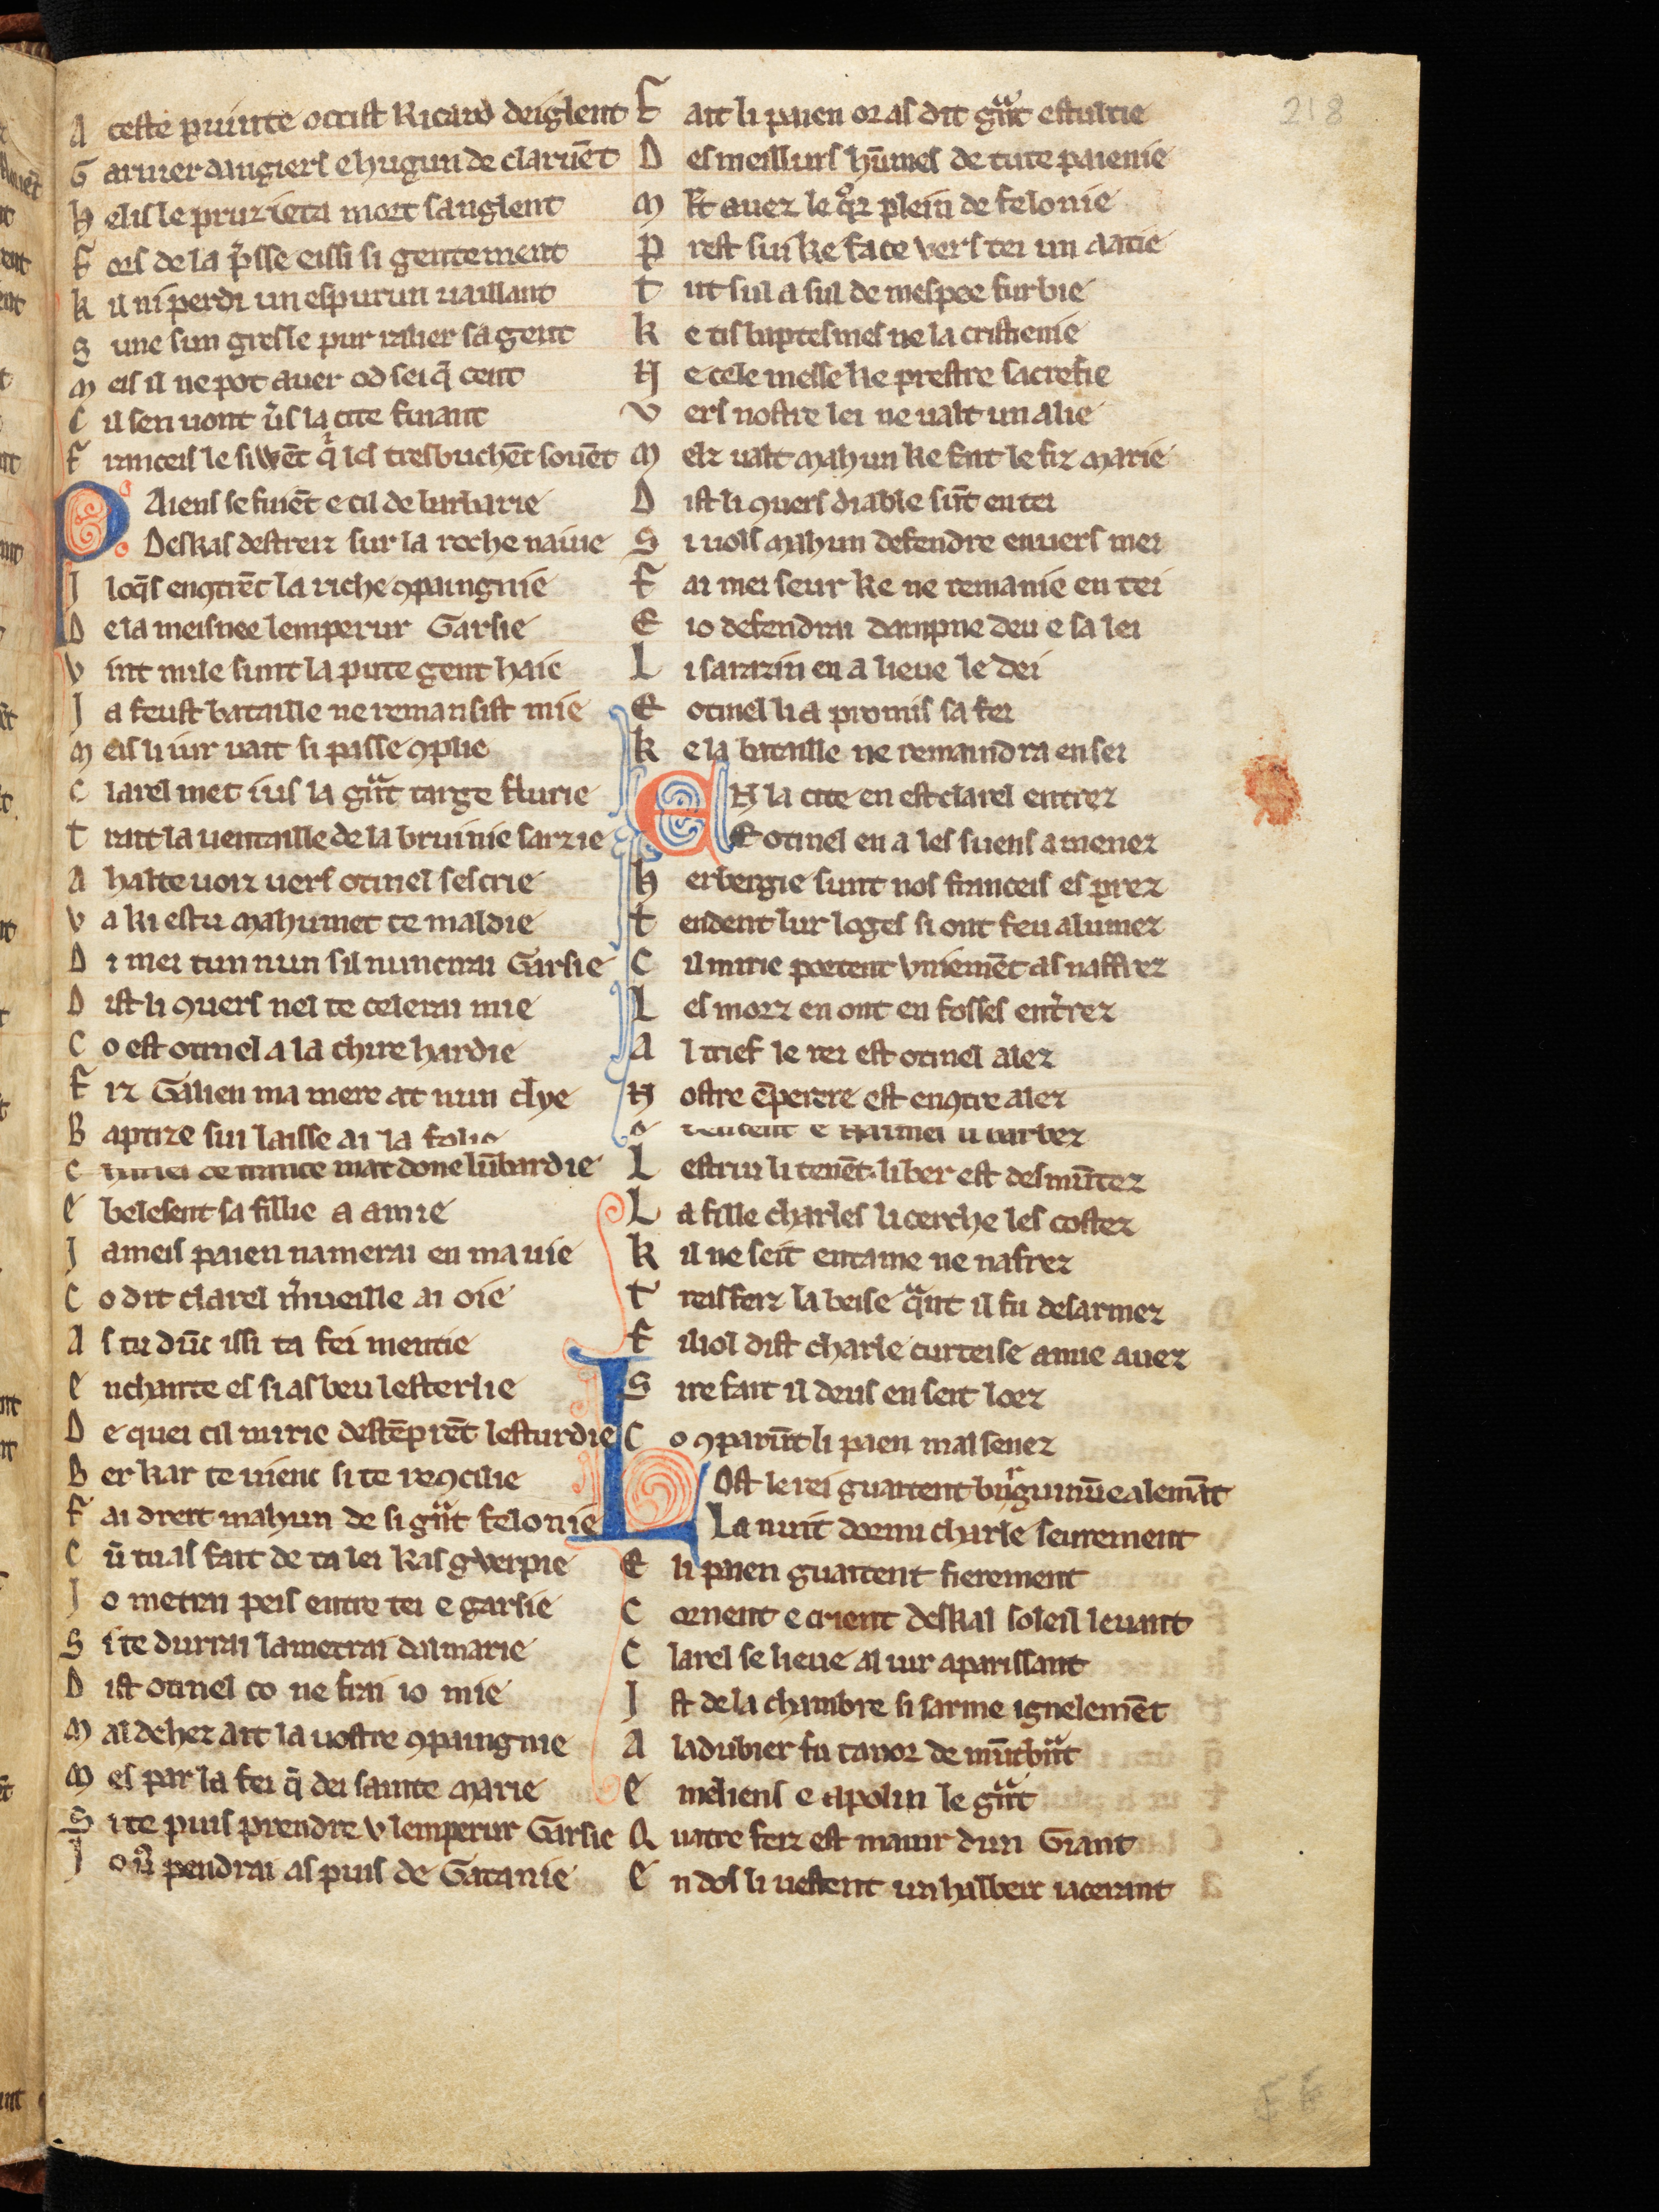 218
A ceste puinte occist Ricard deiglent
G arnier daugiers e hugun de claruēt
h elis le pruz ieta mort sanglent
F ors de la p̄sse eissi si gentement
k il ni perdi un espurun uaillant
S une sun gresle pur ralier sa gent
M eis il ne pot auer od sei q̄ cent
C il sen uont ūs la cite fuiant
F ranceis le siwēt qͥ les tresbuchēt souēt
P Aiens se fuiēt e cil de barbarie
Deskas destreiz sur la roche naiue
I loq̄s encꝯtrēt la riche ꝯpaingnie
D e la meisnee lemperur Garsie
V int mile sunt la pute gent haie
J a feust bataille ne remansist mie
M eis li iur uait si passe ꝯplie
C larel met ius la gͣnt targe flurie
T rait la uentaille de la bruinie sarzie
A halte uoiz uers otinel sescrie
V a ki es tu mahumet te maldie
D i mei tun nun sil nuncirai Garsie
D ist li quers nel te celerai mie
C o est otinel a la chire hardie
F iz Galien ma mere at nun clye
B aptize sui laisse ai la folie
mat done lūbardie
E belesent sa fillie a amie
J ameis paien namerai en ma uie
C o dit clarel m̄ueille ai oie
A s tu dūc issi ta fei mentie
E nchante es si as beu lesterlie
D e quei cil mirie destēprēt lesturdie
B er kar te uient si te recꝯcilie
F ai dreit mahun de si gͣnt felonie
C ū tu as fait de ta lei kas gͥwerpie
J o metrai peis entre tei e garsie
S i te durrai lametrai dalmarie
D ist otinel co ne frai io mie
M al dehez ait la uostre ꝯpaingnie
M es par la fei q̄ dei sainte marie
S i te puis prendre v lemperur Garsie
J o uͦ pendrai as puis de Gatanie
F ait li paien or as dit gͣnt estultie
D es meillurs hūmes de tute paienie
M lt auez le qͦr plein de felonie
P rest sui ke face vers tei un aatie
T ut sul a sul de mespee furbie
K e tis baptesmes ne la cristienie
N e cele messe ke prestre sacrefie
V ers nostre lei ne ualt un alie
M elz ualt mahun ke fait le fiz marie
D ist li quers diable sūt en tei
S i uols mahun defendre enuers mei
F ai mei seur ke ne remanie en tei
E io defendrai dampne deu e sa lei
L i sarazin en a lieue le dei
E otinel li a promis sa fei
K e la bataille ne remaindra en sei
E N la cite en est clarel entrez
E otinel en a les suens amenez
h erbergie sunt nos franceis es prez
T endent lur loges si ont feu alumez
C il mirie poetent vniemēt as naffrez
L es morz en ont en fosses entrez
A l trief le rei est otinel alez
N ostre ēperere est encꝯtre alez
e Naimes li barbez
L estriu li tenēt li ber est desmūtez
L a fille charles li cerche les costez
K il ne seit entame ne nafrez
T reis feiz la beise qͣnt il fu desarmez
F iliol dist charle curteise amie auez
S ire fait il deus en seit loez
C o ꝯparūt li paen mal senez
L Ost le rei guaitent burguinū e alemāt
La nuit dormi charle seurement
E li paien guaitent fierement
C ornent e crient deskal soleil leuant
C larel se lieue al iur aparissant
I st de la chambre si sarme ignelemēt
A ladubier fu tanor de mūtbrāt
E meliens e apolin le gͣnt
Q uatre feiz est maiur dun Giant
E n dos li uestent un halberc iacerant